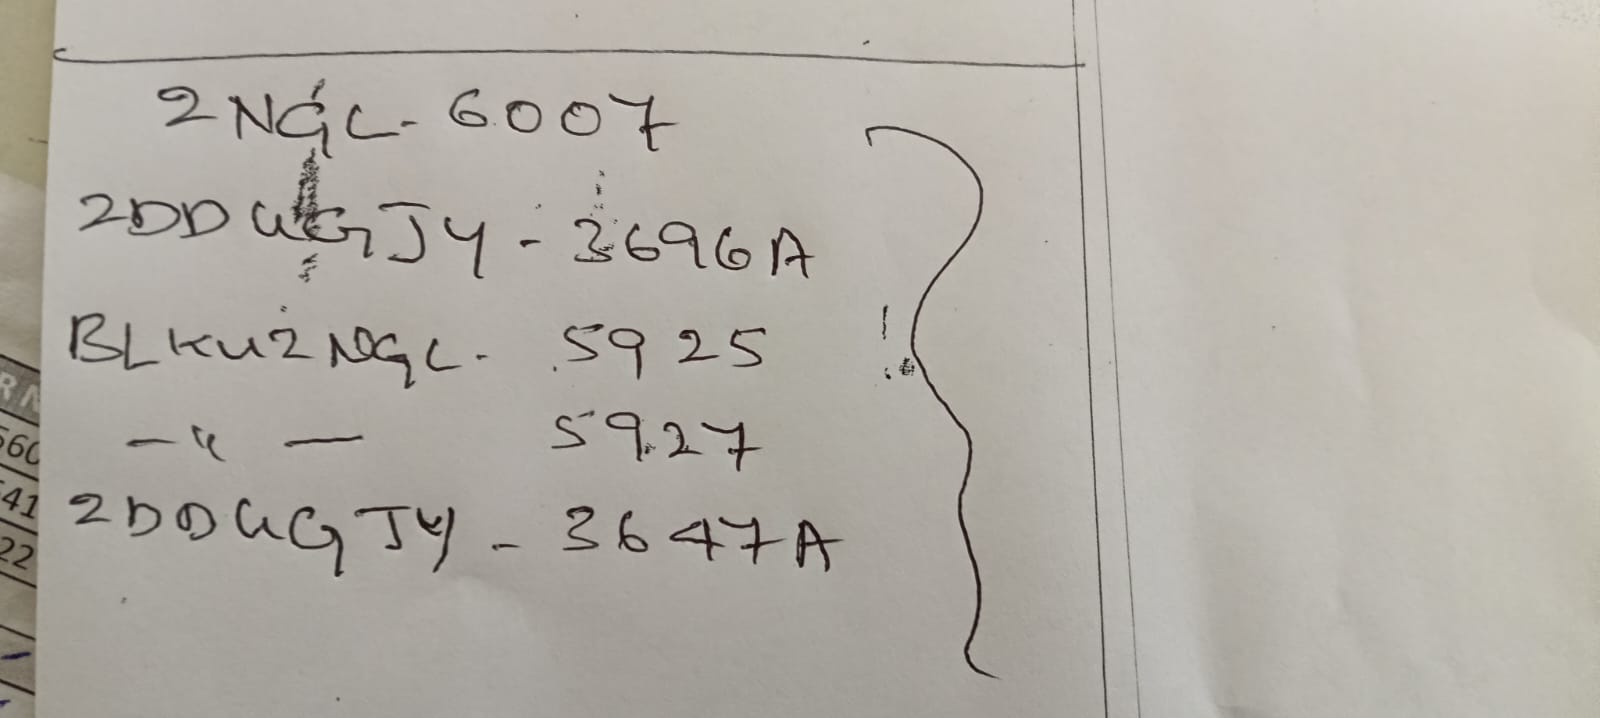 2NGC-6007
2DDUGJY-3696A
BLKU2NGC-5925
-"- 5927
2DDUGJY-3647A
RN
560
41
22